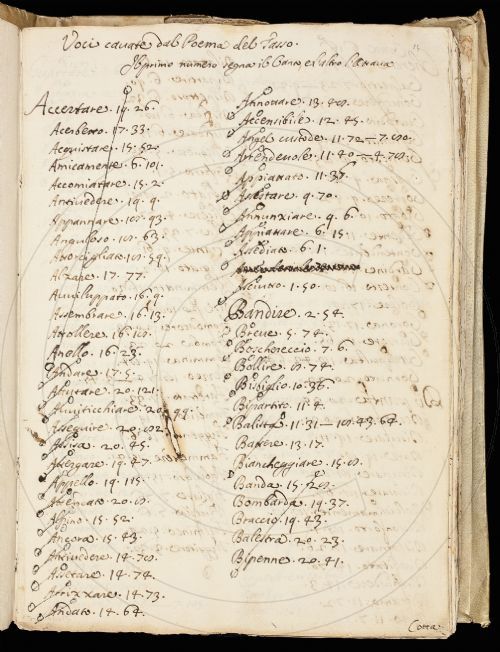 Voci cavate dal Poema del Tasso.
Il primo numero segna il Canto e l'altro l'ottava
Accertare. 19. 26.
Acerbetto. 17. 33.
Acquistare. 15. 52.
Amicamente. 6. 101.
Accomiatare. 15. 2.
Antivedere. 19. 9.
Appannare. 93.
Anguloso. 63.
Attorcigliato. 59.
Alzare. 17. 77.
Avviluppato. 16. 9.
Assembrare. 16. 13.
Attollere. 16.
Anello. 16. 23.
Andare. 17. 5.
Aiutare. 20. 121.
Avviticchiare. 20. 99.
Asseguire. 20.
Assisa. 20. 25.
Attergare. 19. 47.
Appello. 19. 115.
20.
Alpino. 15. 52.
Ancora. 15. 43.
Antivedere. 14.
14. 74.
Arrizzare. 14. 73.
Andato. 14. 64.
Annottare. 13.
Accensibile. 12. 45.
Angel custode. 11. 72 — 7.
Arrendevole. 11. 40 —
Appianato. 11. 37.
Assestare. 9. 70.
Annunziare. 9. 6.
Appiattare. 6. 15.
Assediato. 6. 1.
Asciutto. 1. 50.
Bandire. 2. 54.
Breve. 5. 74.
Boschereccio. 7. 6.
Bollire. 74.
Bisbiglio. 10. 36.
Bipartito. 11. 4.
Balista. 11. 31 — 43. 64.
Battere. 13. 17.
Biancheggiare. 15.
Banda. 15.
Bombarda. 19. 37.
Braccio. 19. 43.
Balestra. 20. 23.
Bipenne. 20. 41.
Cotta